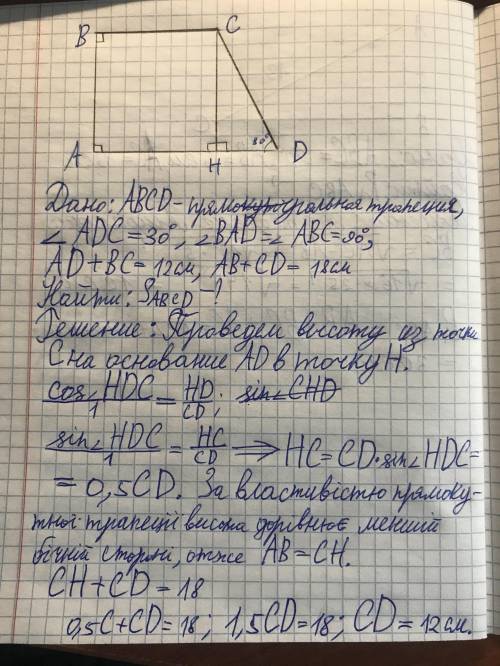 B C
30°
A H D
Дано: ABCD - прямоугольная трапеция,
∠ ADC = 30°, ∠BAD = ∠ ABC = 90°,
AD + BC = 12см, AB + CD = 18см
Найти: S ABCD - ?
Решение: Проведем высоту из точки
С на основание AD в точку H.
cos∠HDC/1 = HD/CD; sin∠CHD
sin∠HDC/1 = HC/CD ⟹ HC = CD·sin∠HDC =
= 0,5CD. За властивістю прямоку-
тної трапеції висота дорівнює меншій
бічній стороні, отже AB = CH.
CH + CD = 18
0,5C + CD = 18; 1,5CD = 18; CD = 12 см.